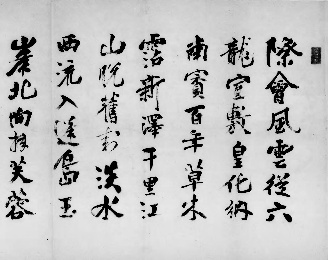 際會風雲從六
龍宣敷皇化納
賓百年草木
霑新澤千里江
山脫舊封淡水
西流入島玉
峯北向芙蓉